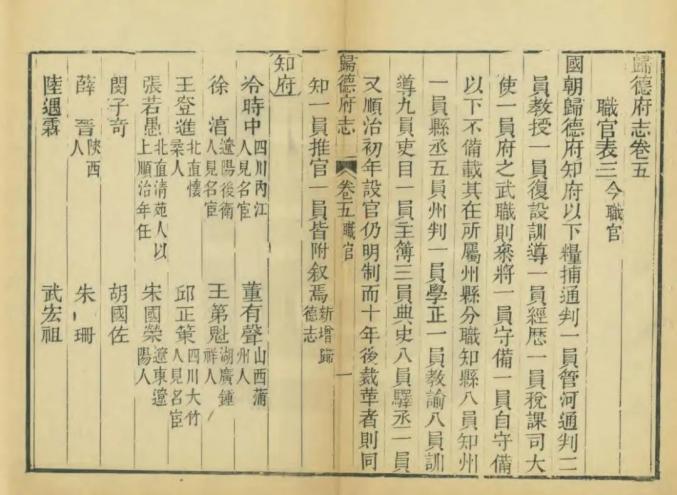 歸德府志卷五
職官表三今職官
國朝歸德府知府以下糧捕通判一員管河通判二
員教授一員復設訓導一員經歷一員稅課司大
使一員府之武職則叅將一員守備一員自守備
以下不備載其在所屬州縣分職知縣八員知州
一員縣丞五員州判一員學正一員教諭八員訓
導九員吏目一員主簿三員典史八員驛丞一員
又順治初年設官仍明制而十年後裁革者則同
歸德府志 卷五職官 一
知一員推官一員皆附叙焉新增歸德志
知府
冷時中四川內江人見名宦 董有聲山西蒲州人
徐淯遼陽後衛人見名宦 王第魁湖廣鍾祥人
王登進北直懷柔人 邱正策四川大竹人見名宦
張若愚北直清苑人以上順治年任 宋國榮遼東遼陽人
閔子奇 胡國佐
薛晋陝西人 朱珊
陸遇霖 武宏祖